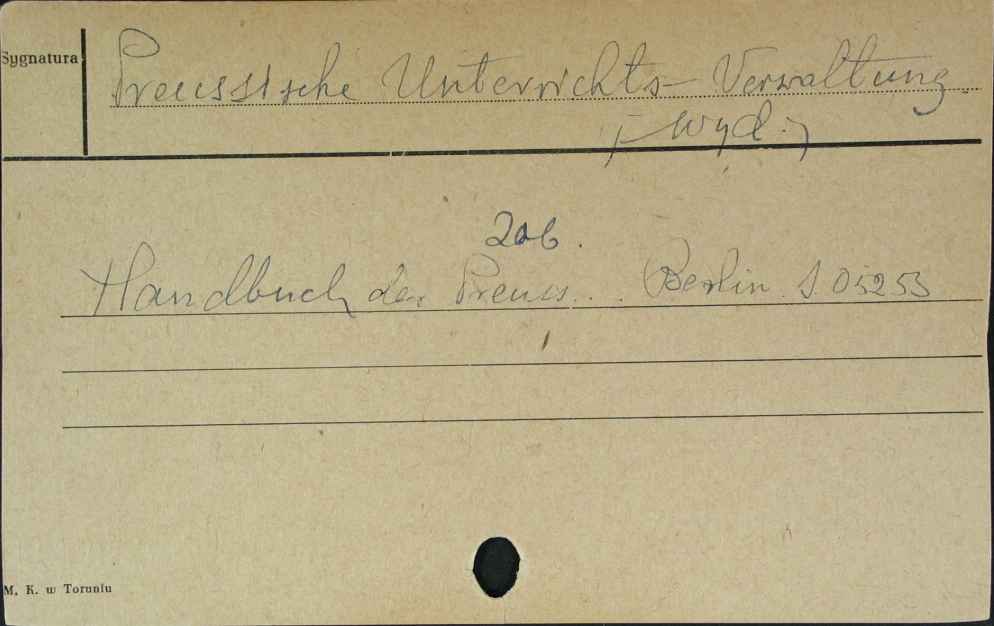 Sygnatura
Preussische Unterrichts-Verwaltung.
/-wyd.-/
Zob.
Handbuch der Preuss... Berlin. S 05253
M. K. w Toruniu